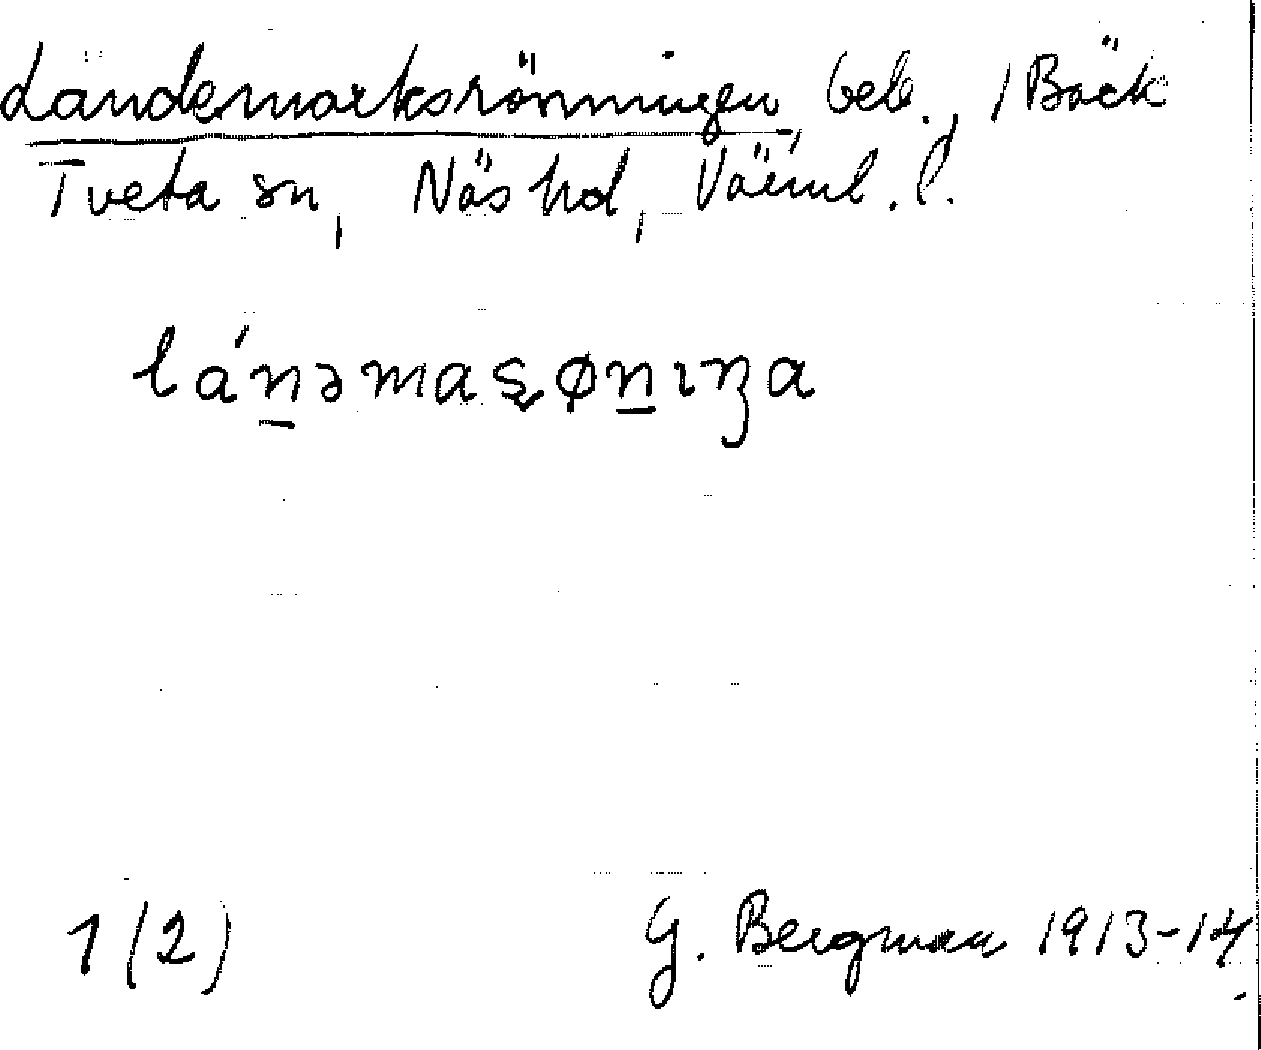 Ländemarksrönningen, beb., i Bäck
Tveta sn, Näs hd, Värml. l.
lánəmaʂønıŋa
1 (2)
G. Bergman 1913-14